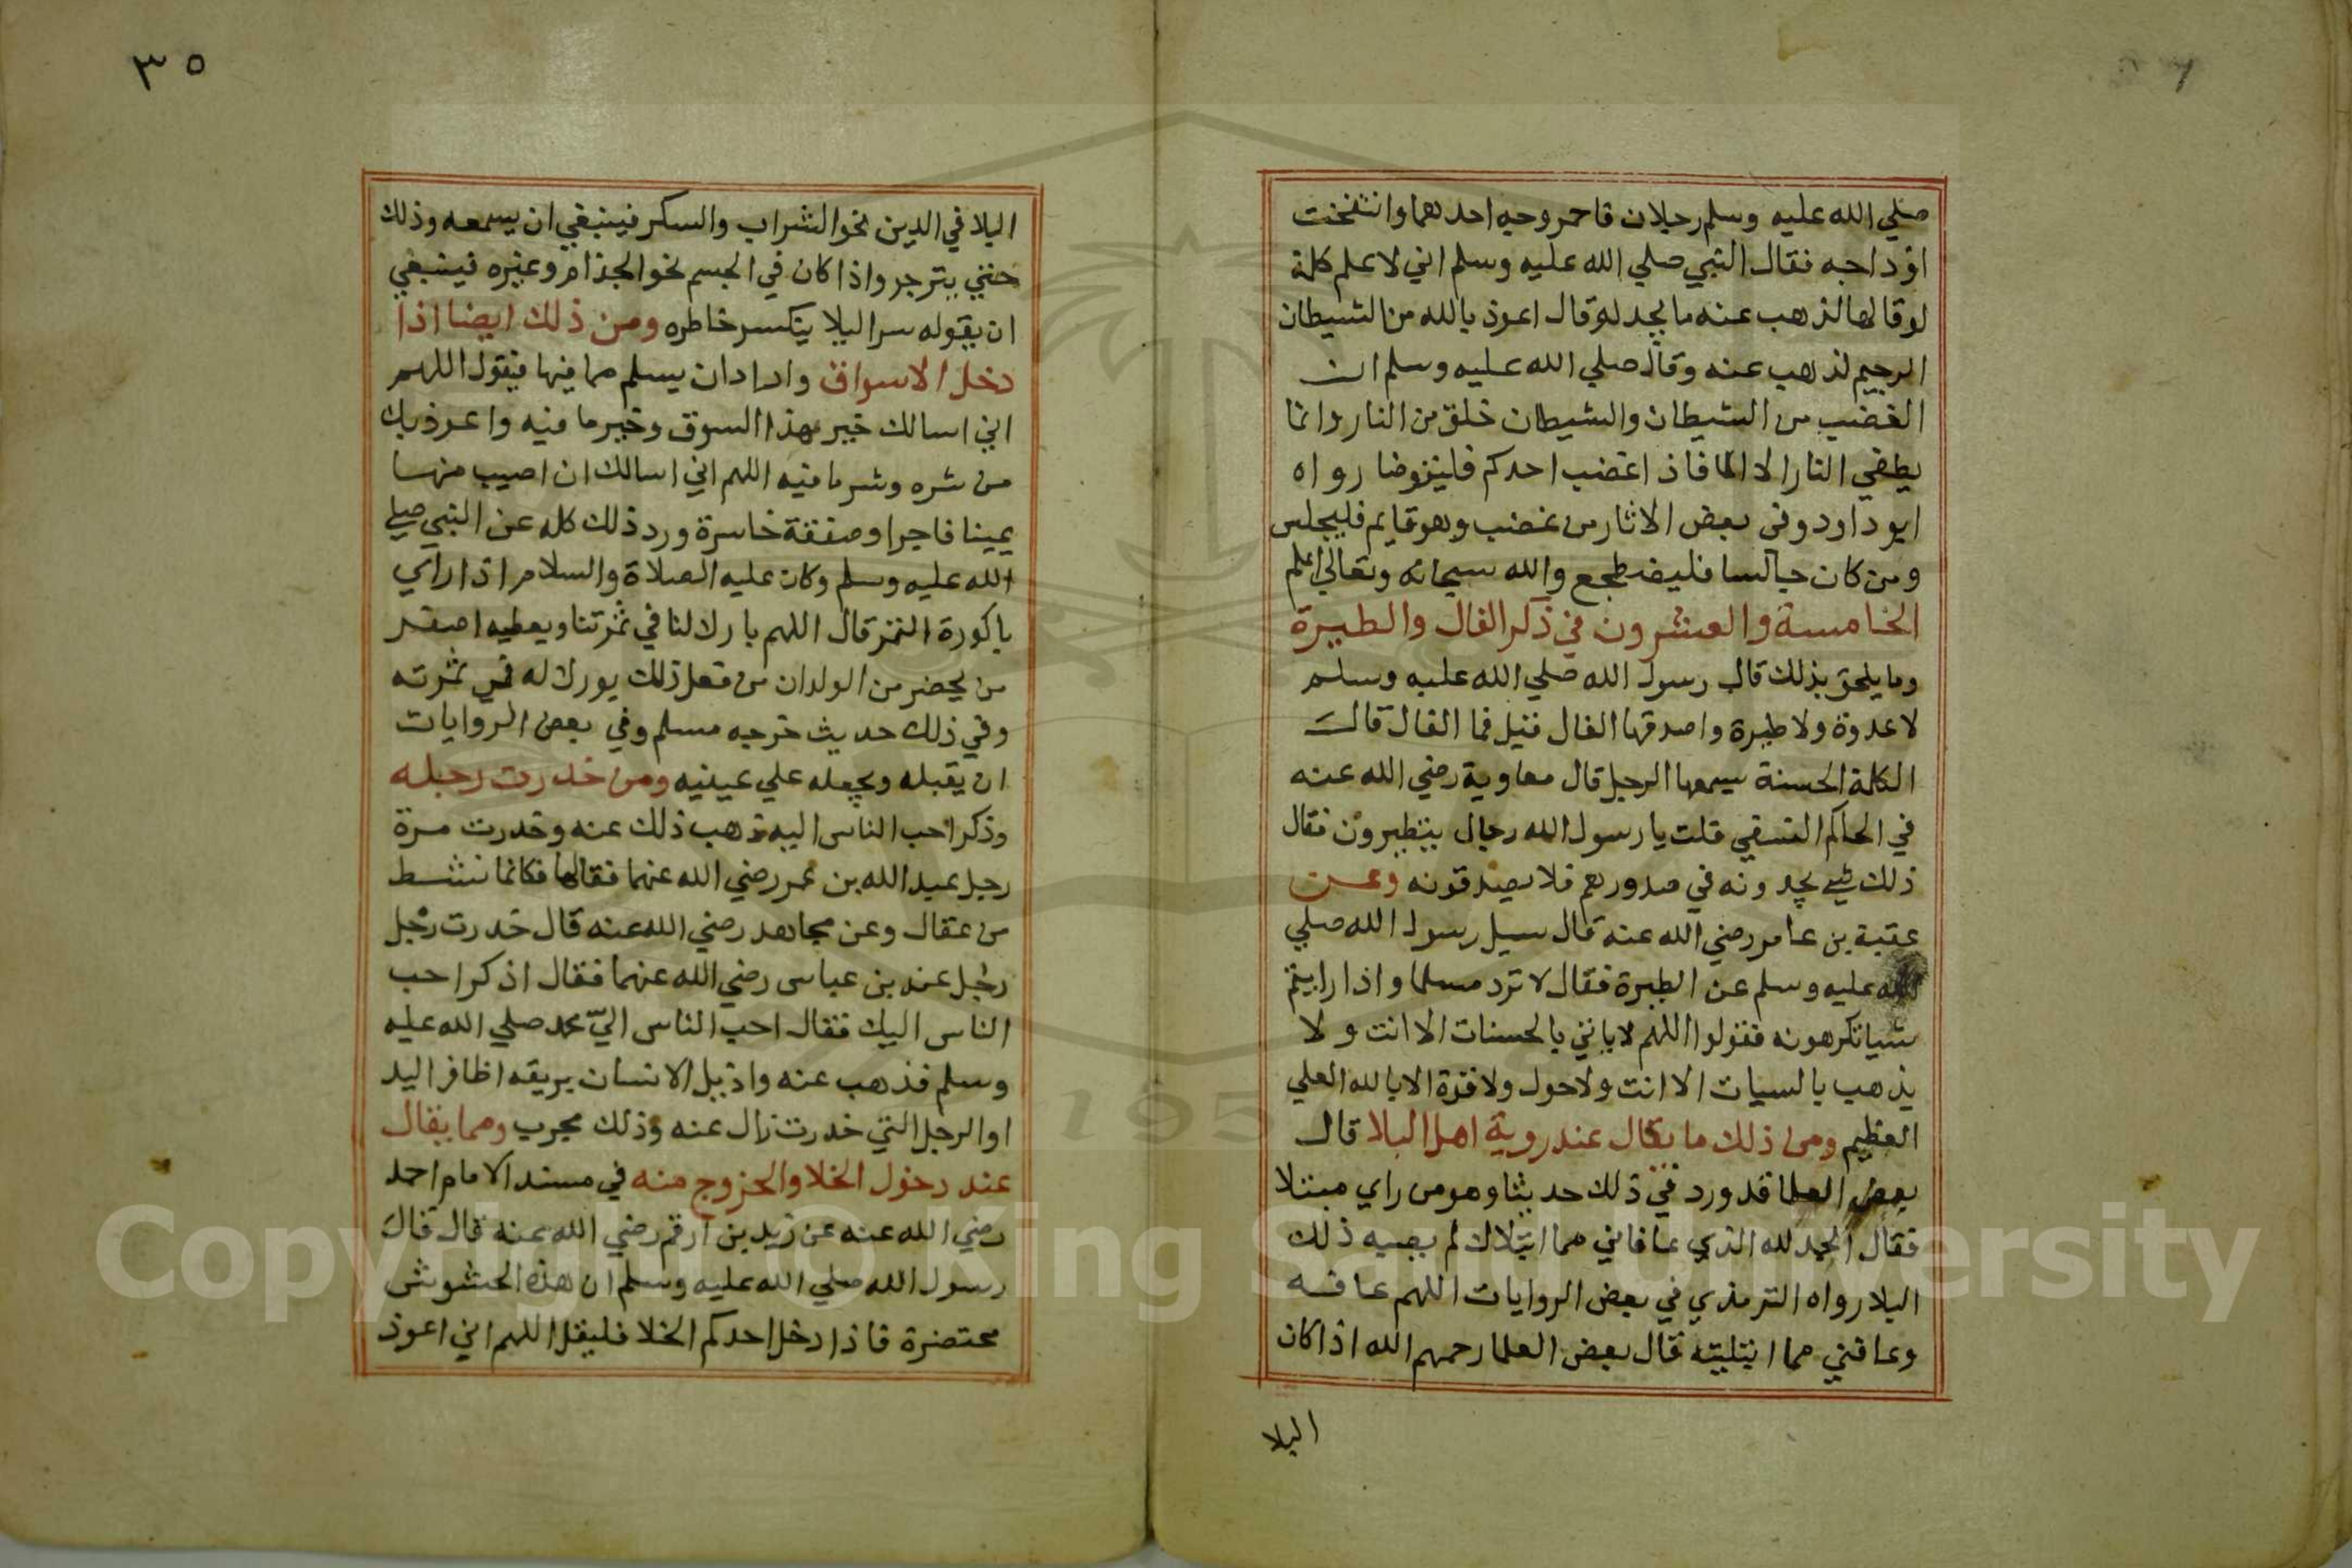 صلي الله عليه وسلم رجلان فاحمر وجه احدهما وانتفخت
اوداجه فقال النبي صلي الله عليه وسلم اني لاعلم كلمة
لوقالها لذهب عنه ما يجد لوقال اعوذ بالله من الشيطان
الرجيم لذهب عنه وقال صلي الله عليه وسلم ان
الغضب من الشيطان والشيطان خلق من النار وانما
يطفي النار الا الما فاذا غضب احدكم فليتوضا رواه
ابو داود وفي بعض الاثار من غضب وهو قايم فليجلس
ومن كان جالسا فليضطجع والله سبحانه وتعالي اعلم
الخامسة والعشرون في ذكر الفال والطيرة
وما يلحق بذلك قال رسول الله صلي الله عليه وسلم
لا عدوة ولا طيرة واصدقها الفال فقيل فما الفال قال
الكلمة الحسنة يسمعها الرجل قال معاوية رضي الله عنه
في الحاكم قلت يا رسول الله رجال يتطيرون فقال
ذلك شي يجدونه في صدورهم فلا يصدقونه وعن
عقبة بن عامر رضي الله عنه قال سيل رسول الله صلي
الله عليه وسلم عن الطيرة فقال لا ترد مسلما واذا رايتم
شيا تكرهونه فقولوا اللهم لا ياتي بالحسنات الا انت ولا
يذهب بالسيات الا انت ولا حول ولا قوة الا بالله العلي
العظيم ومن ذلك ما يقال عند روية اهل البلا قال
بعض العلما قد ورد في ذلك حديثا وهو من راي مبتلا
فقال الحمد لله الذي عافاني مما ابتلاك لم يصبه ذلك
البلا رواه الترمذي في بعض الروايات اللهم عافه
وعافني مما ابتليته قال بعض العلما رحمهم الله اذا كان
البلا
٣٥
البلا في الدين نحو الشراب والسكر فينبغي ان يسمعه وذلك
حتي يتزجر واذا كان في الجسم نحو الجذام وغيره فينبغي
ان يقوله سرا ليلا ينكسر خاطره ومن ذلك ايضا اذا
دخل الاسواق واراد ان يسلم مما فيها فيقول اللهم
اني اسالك خير هذا السوق وخير ما فيه واعوذ بك
من شره وشر ما فيه اللهم اني اسالك ان اصيب منها
يمينا فاجرا وصفقة خاسرة ورد ذلك كله عن النبي صلي
الله عليه وسلم وكان عليه الصلاة والسلام اذا راي
باكورة الثمر قال اللهم بارك لنا في ثمرتنا ويعطيه اصغر
من يحضر من الولدان من فعل ذلك بورك له في ثمرته
وفي ذلك حديث خرجه مسلم وفي بعض الروايات
ان يقبله ويجعله علي عينيه ومن خدرت رجله
وذكر احب الناس اليه ذهب ذلك عنه وخدرت مرة
رجل عبد الله بن عمر رضي الله عنهما فقالها فكانما نشط
من عقال وعن مجاهد رضي الله عنه قال خدرت رجل
رجل عند بن عباس رضي الله عنهما فقال اذكر احب
الناس اليك فقال احب الناس الي محمد صلي الله عليه
وسلم فذهب عنه واذ يبل الانسان بريقه اظافر اليد
او الرجل التي خدرت زال عنه وذلك مجرب ومما يقال
عند دخول الخلا والخروج منه في مسند الامام احمد
رضي الله عنه عن زيد بن ارقم رضي الله عنه قال قال
رسول الله صلي الله عليه وسلم ان هذه الحشوش
محتضرة فاذا دخل احدكم الخلا فليقل اللهم اني اعوذ
Copyright © King Saud University
195